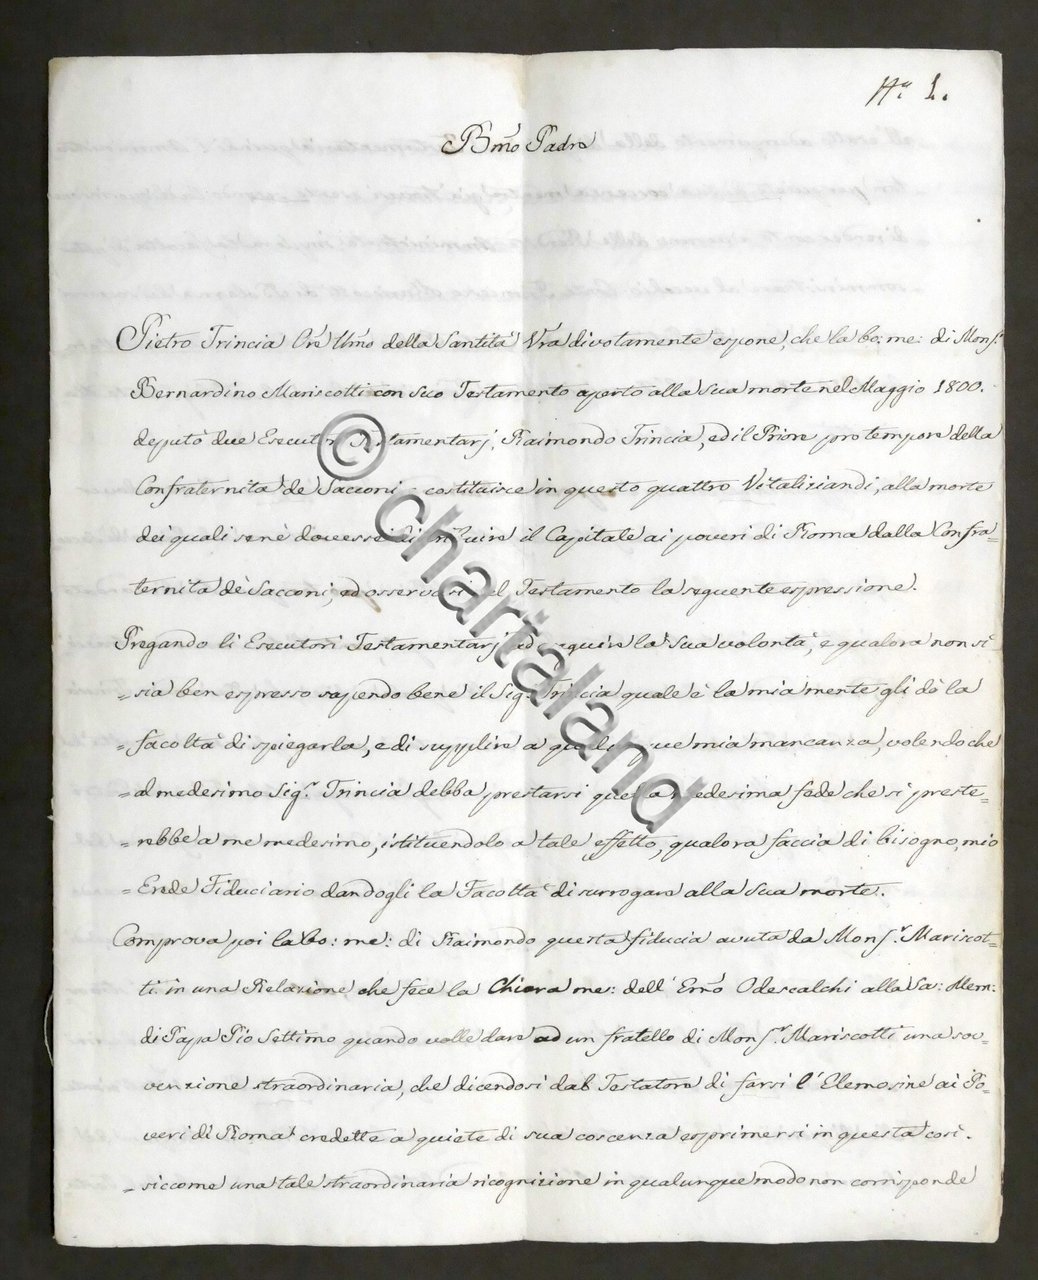 N.º 1.
Bm̃o Padre
Pietro Trincia Ore Um̃o della Santità Vr̃a divotamente espone, che la bo: me: di Monsʳ
Bernardino Mariscotti con suo Testamento aperto alla sua morte nel Maggio 1800.
deputò due Esecutori Testamentarj, Raimondo Trincia, ed il Priore pro tempore della
Confraternita de' Sacconi, costituisce in questo quattro Vitaliziandi, alla morte
dei quali se ne dovesse distribuire il Capitale ai poveri di Roma dalla Confra=
ternita de' Sacconi, ed osservasi nel Testamento la seguente espressione.
Pregando li Esecutori Testamentarj ad eseguire la sua volontà, e qualora non si
= sia ben espresso sapendo bene il Sigʳ Trincia quale è la mia mente gli dò la
= facoltà di spiegarla, e di supplire a qualunque mia mancanza, volendo che
= al medesimo Sigʳ Trincia debba prestarsi quella medesima fede che si preste=
= rebbe a me medesimo, istituendolo a tale effetto, qualora faccia di bisogno, mio
= Erede Fiduciario dandogli la Facoltà di surrogare alla sua morte.
Comprova poi la bo: me: di Raimondo questa fiducia avuta da Monsʳ Mariscot=
ti in una Relazione, che fece la Chiara me: dell' Em̃o Odescalchi alla Sa: Mem:
di Papa Pio Settimo quando volle dare ad un fratello di Monsʳ Mariscotti una sov=
venzione straordinaria, che dicendosi dal Testatore di farsi l'Elemosine ai Po=
veri di Roma credette a quiete di sua coscenza esprimersi in questa così.
= siccome una tale straordinaria ricognizione in qualunque modo non corrisponde
© chartaland